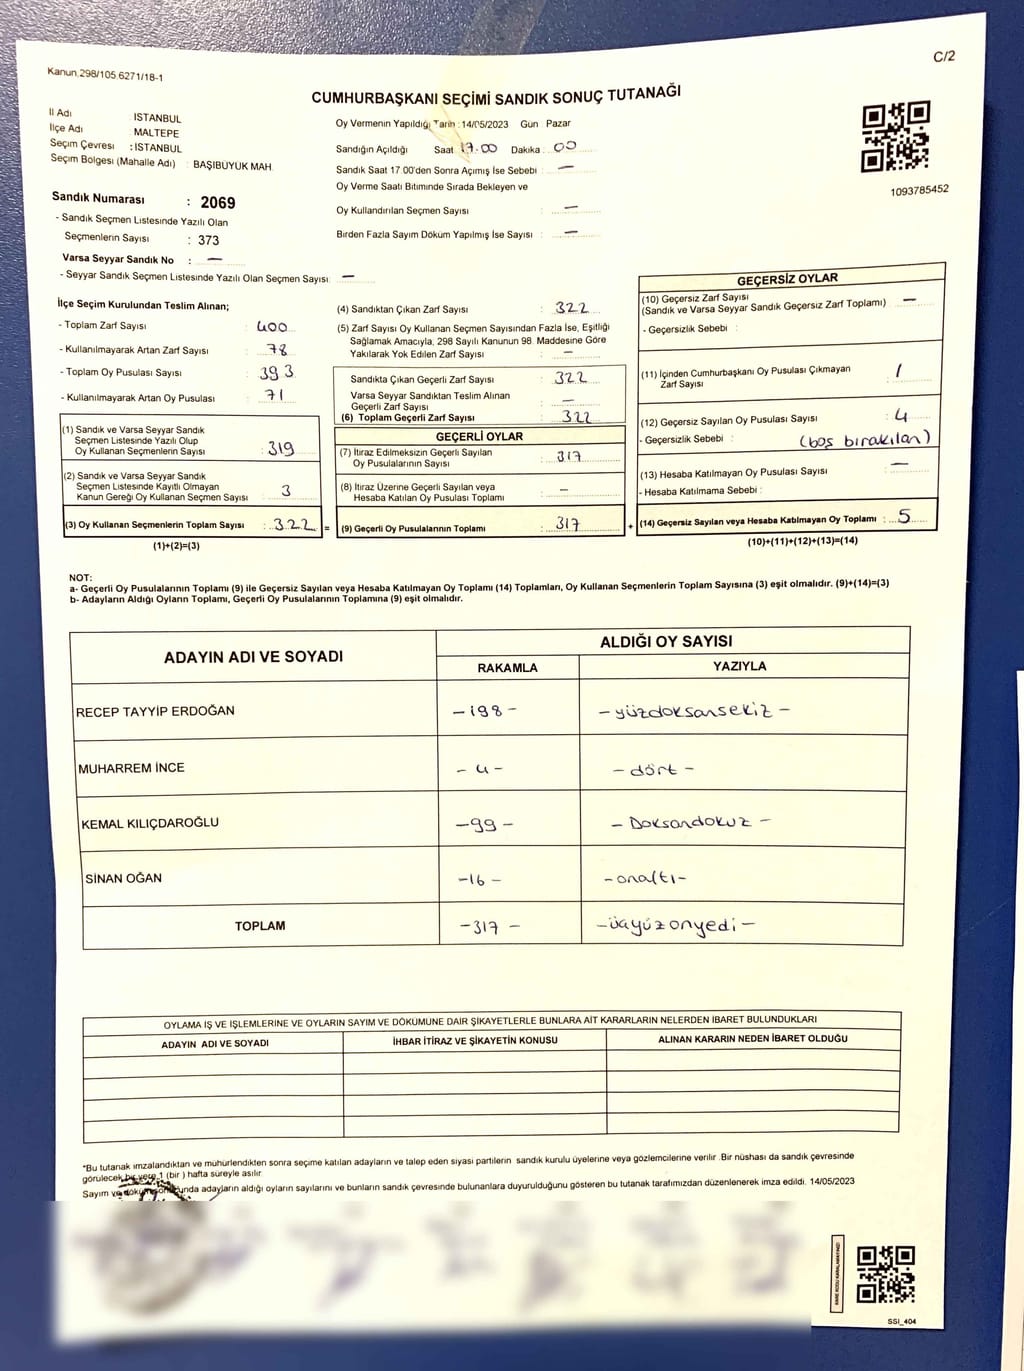 Kanun.298/105.6271/18-1
C/2
CUMHURBAŞKANI SEÇİMİ SANDIK SONUÇ TUTANAĞI
İl Adı İSTANBUL
İlçe Adı MALTEPE
Seçim Çevresi : İSTANBUL
Seçim Bölgesi (Mahalle Adı) : BAŞIBÜYÜK MAH.
Sandık Numarası : 2069
- Sandık Seçmen Listesinde Yazılı Olan
Seçmenlerin Sayısı : 373
Varsa Seyyar Sandık No : —
- Seyyar Sandık Seçmen Listesinde Yazılı Olan Seçmen Sayısı: —
Oy Vermenin Yapıldığı Tarih : 14/05/2023 Gün Pazar
Sandığın Açıldığı Saat 17.00 Dakika : 00
Sandık Saat 17.00'den Sonra Açımış İse Sebebi : —
Oy Verme Saati Bitiminde Sırada Bekleyen ve
Oy Kullandırılan Seçmen Sayısı : —
Birden Fazla Sayım Döküm Yapılmış İse Sayısı : —
1093785452
İlçe Seçim Kurulundan Teslim Alınan;
- Toplam Zarf Sayısı : 400
- Kullanılmayarak Artan Zarf Sayısı : 78
- Toplam Oy Pusulası Sayısı : 393
- Kullanılmayarak Artan Oy Pusulası : 71
(1) Sandık ve Varsa Seyyar Sandık
Seçmen Listesinde Yazılı Olup
Oy Kullanan Seçmenlerin Sayısı : 319
(2) Sandık ve Varsa Seyyar Sandık
Seçmen Listesinde Kayıtlı Olmayan
Kanun Gereği Oy Kullanan Seçmen Sayısı : 3
(3) Oy Kullanan Seçmenlerin Toplam Sayısı : 322 =
(1)+(2)=(3)
(4) Sandıktan Çıkan Zarf Sayısı : 322
(5) Zarf Sayısı Oy Kullanan Seçmen Sayısından Fazla İse, Eşitliği
Sağlamak Amacıyla, 298 Sayılı Kanunun 98. Maddesine Göre
Yakılarak Yok Edilen Zarf Sayısı : —
Sandıkta Çıkan Geçerli Zarf Sayısı : 322
Varsa Seyyar Sandıktan Teslim Alınan
Geçerli Zarf Sayısı : —
(6) Toplam Geçerli Zarf Sayısı : 322
GEÇERLİ OYLAR
(7) İtiraz Edilmeksizin Geçerli Sayılan
Oy Pusulalarının Sayısı : 317
(8) İtiraz Üzerine Geçerli Sayılan veya
Hesaba Katılan Oy Pusulası Toplamı : —
(9) Geçerli Oy Pusulalarının Toplamı : 317 +
GEÇERSİZ OYLAR
(10) Geçersiz Zarf Sayısı : —
(Sandık ve Varsa Seyyar Sandık Geçersiz Zarf Toplamı)
- Geçersizlik Sebebi :
(11) İçinden Cumhurbaşkanı Oy Pusulası Çıkmayan
Zarf Sayısı : 1
(12) Geçersiz Sayılan Oy Pusulası Sayısı : 4
- Geçersizlik Sebebi : (boş bırakılan)
(13) Hesaba Katılmayan Oy Pusulası Sayısı : —
- Hesaba Katılmama Sebebi :
(14) Geçersiz Sayılan veya Hesaba Katılmayan Oy Toplamı : 5
(10)+(11)+(12)+(13)=(14)
NOT:
a- Geçerli Oy Pusulalarının Toplamı (9) ile Geçersiz Sayılan veya Hesaba Katılmayan Oy Toplamı (14) Toplamları, Oy Kullanan Seçmenlerin Toplam Sayısına (3) eşit olmalıdır. (9)+(14)=(3)
b- Adayların Aldığı Oyların Toplamı, Geçerli Oy Pusulalarının Toplamına (9) eşit olmalıdır.
ADAYIN ADI VE SOYADI ALDIĞI OY SAYISI
RAKAMLA YAZIYLA
RECEP TAYYİP ERDOĞAN -198- -yüzdoksansekiz-
MUHARREM İNCE -4- -dört-
KEMAL KILIÇDAROĞLU -99- -Doksandokuz-
SİNAN OĞAN -16- -onaltı-
TOPLAM -317- -üçyüzonyedi-
OYLAMA İŞ VE İŞLEMLERİNE VE OYLARIN SAYIM VE DÖKÜMÜNE DAİR ŞİKAYETLERLE BUNLARA AİT KARARLARIN NELERDEN İBARET BULUNDUKLARI
ADAYIN ADI VE SOYADI İHBAR İTİRAZ VE ŞİKAYETİN KONUSU ALINAN KARARIN NEDEN İBARET OLDUĞU
*Bu tutanak imzalandıktan ve mühürlendikten sonra seçime katılan adayların ve talep eden siyasi partilerin sandık kurulu üyelerine veya gözlemcilerine verilir .Bir nüshası da sandık çevresinde
görülecek bir yere 1 (bir ) hafta süreyle asılır.
Sayım ve döküm sonunda adayların aldığı oyların sayılarını ve bunların sandık çevresinde bulunanlara duyurulduğunu gösteren bu tutanak tarafımızdan düzenlenerek imza edildi. 14/05/2023
SSI_404